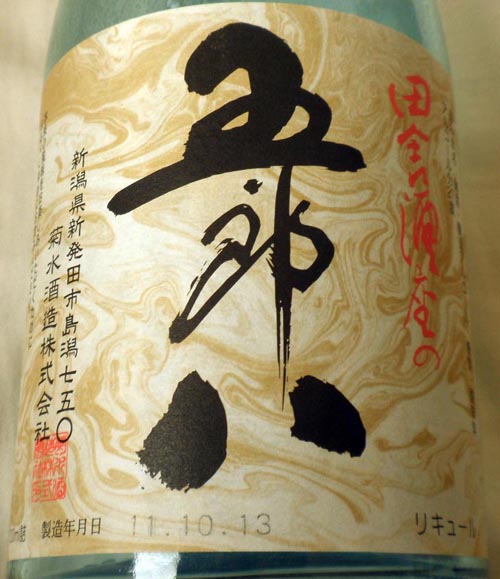 田舎酒座の
五郎八
新潟県新発田市島潟七五〇
菊水酒造株式会社
製造年月日 11.10.13
リキュール